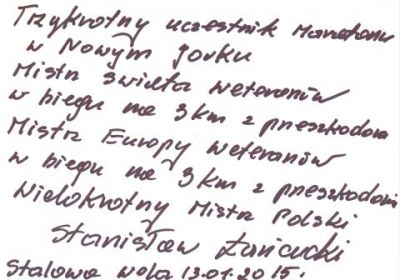 Trzykrotny uczestnik Maratonu
w Nowym Jorku
Mistrz świata weteranów
w biegu na 3 km z przeszkodami
Mistrz Europy weteranów
w biegu na 3 km z przeszkodami
Wielokrotny Mistrz Polski
Stanisław Łańcucki
Stalowa Wola 13.01.2015 r.